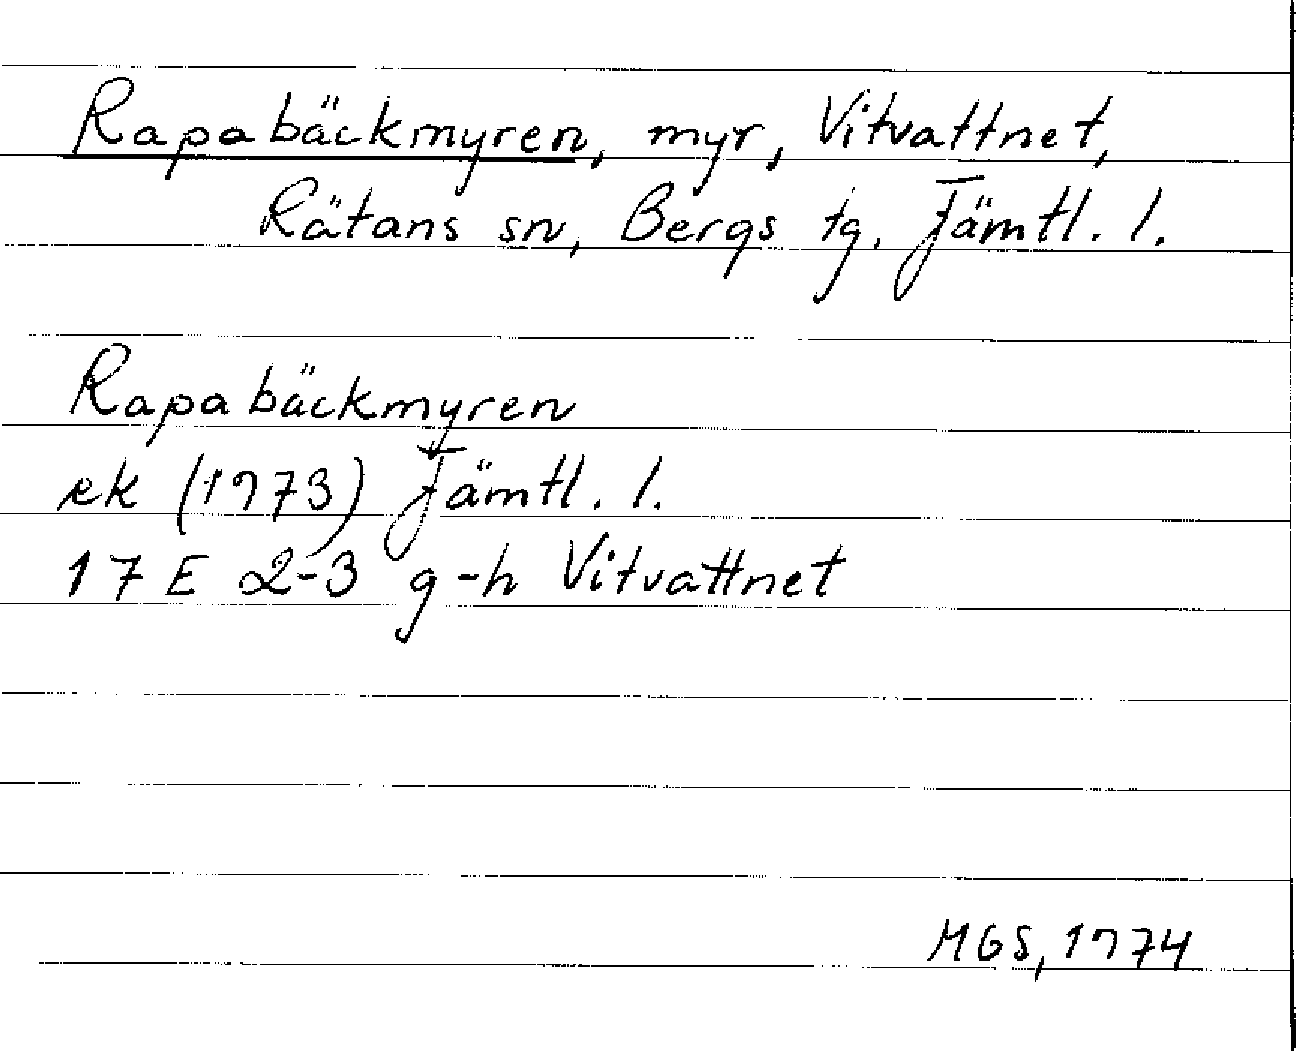 Rapabäckmyren, myr, Vitvattnet,
Rätans sn, Bergs tg. Jämtl. l.
Rapabäckmyren
ek (1973) Jämtl. l.
17 E 2-3 g-h Vitvattnet
MGS, 1974